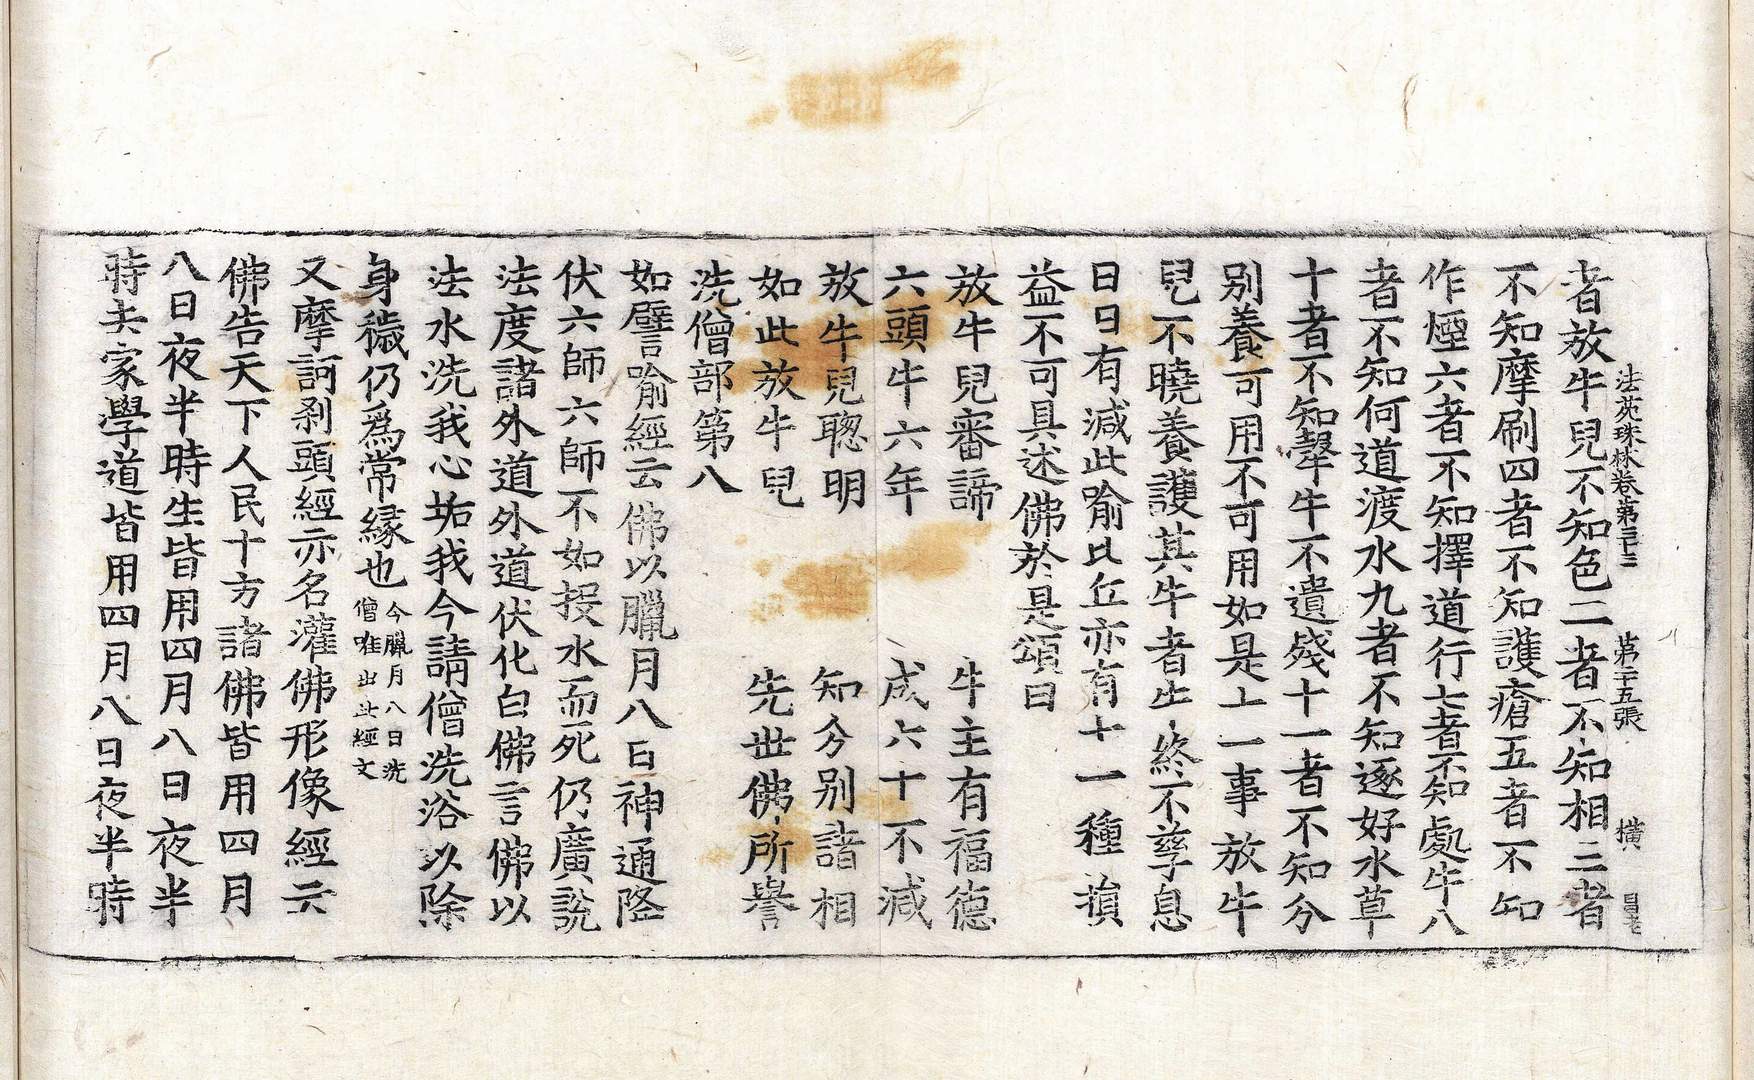 法苑珠林卷第三十三 第二十五張 橫
者放牛兒不知色二者不知相三者
不知摩刷四者不知護瘡五者不知
作煙六者不知擇道行七者不知處牛八
者不知何道渡水九者不知逐好水草
十者不知㲉牛不遺殘十一者不知分
別養可用不可用如是上一事放牛
兒不曉養護其牛者出終不孳息
日日有減此喻比丘亦有十一種損
益不可具述佛於是頌曰
放牛兒審諦 牛主有福德
六頭牛六年 成六十不減
放牛兒聰明 知分別諸相
如此放牛兒 先世佛所譽
洗僧部第八
如譬喻經云佛以臘月八日神通降
伏六師六師不如投水而死仍廣說
法度諸外道外道伏化白佛言佛以
法水洗我心垢我今請僧洗浴以除
身穢仍爲常緣也今臘月八日洗僧唯出此經文
又摩訶剎頭經亦名灌佛形像經云
佛告天下人民十方諸佛皆用四月
八日夜半時生皆用四月八日夜半
時去家學道皆用四月八日夜半時